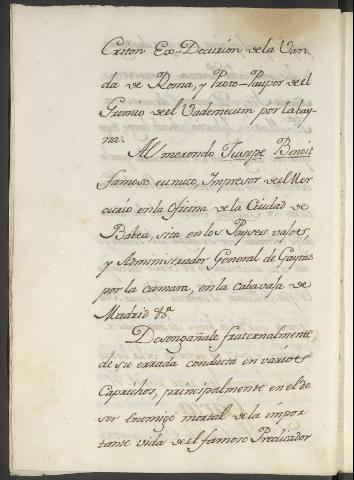 Criton Ex-Decurión de la Van-
da de Roma, y Proto-Pauper de el
Gremio de el Vademecum por la bay-
na.
Al morondo Jusepe Benoit
famoso eunuco, Impresor de el Mer
curio en la Oficina de la Ciudad de
Babea, sita en los Payses vajos,
y Administrador General de Gaytas
por la cámara, en la casa vaja de
Madrid &a
Desengañale fraternalmente
de su errada conducta en varios
Caprichos, principalmente en el de
ser Enemigo mortal de la impor
tante vida de el famoso Predicador